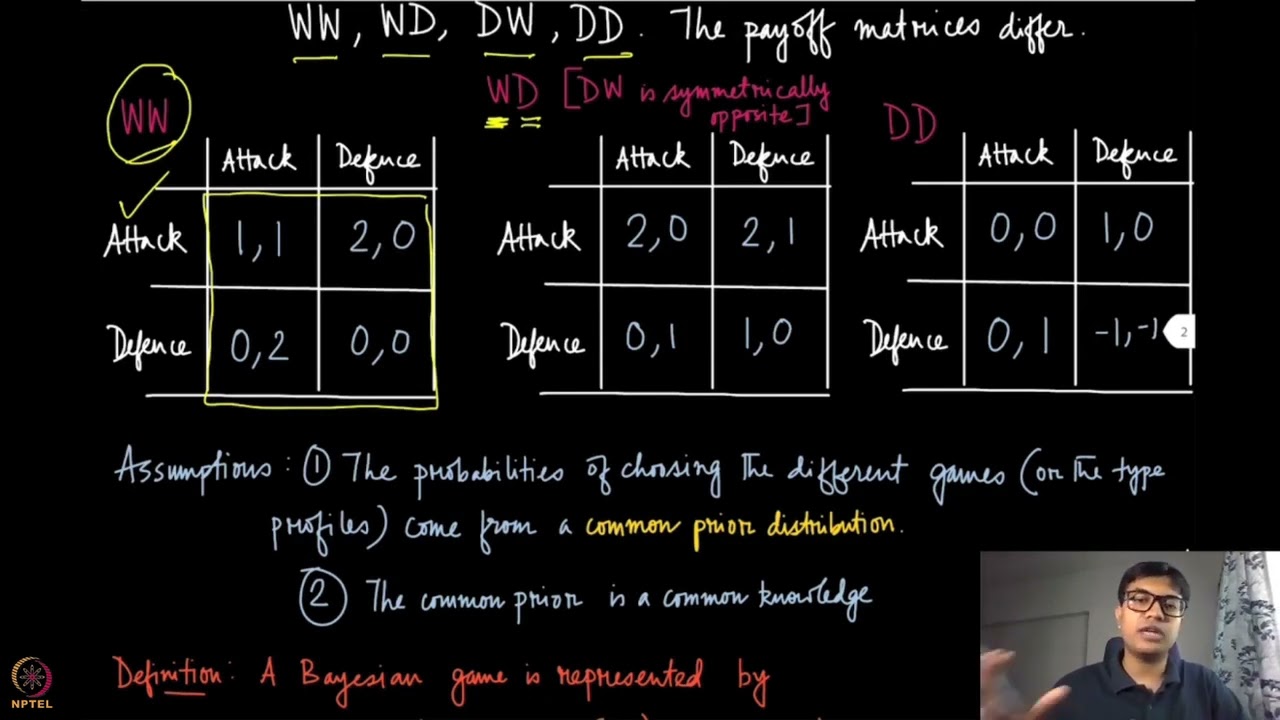 WW, WD, DW, DD. The payoff matrices differ.
WW
WD [DW is symmetrically
opposite]
DD
Attack Defence
Attack 1,1 2,0
Defence 0,2 0,0
Attack Defence
Attack 2,0 2,1
Defence 0,1 1,0
Attack Defence
Attack 0,0 1,0
Defence 0,1 -1,-1
2
Assumptions: ① The probabilities of choosing the different games (or the type
profiles) come from a common prior distribution.
② The common prior is a common knowledge
Definition: A Bayesian game is represented by
NPTEL